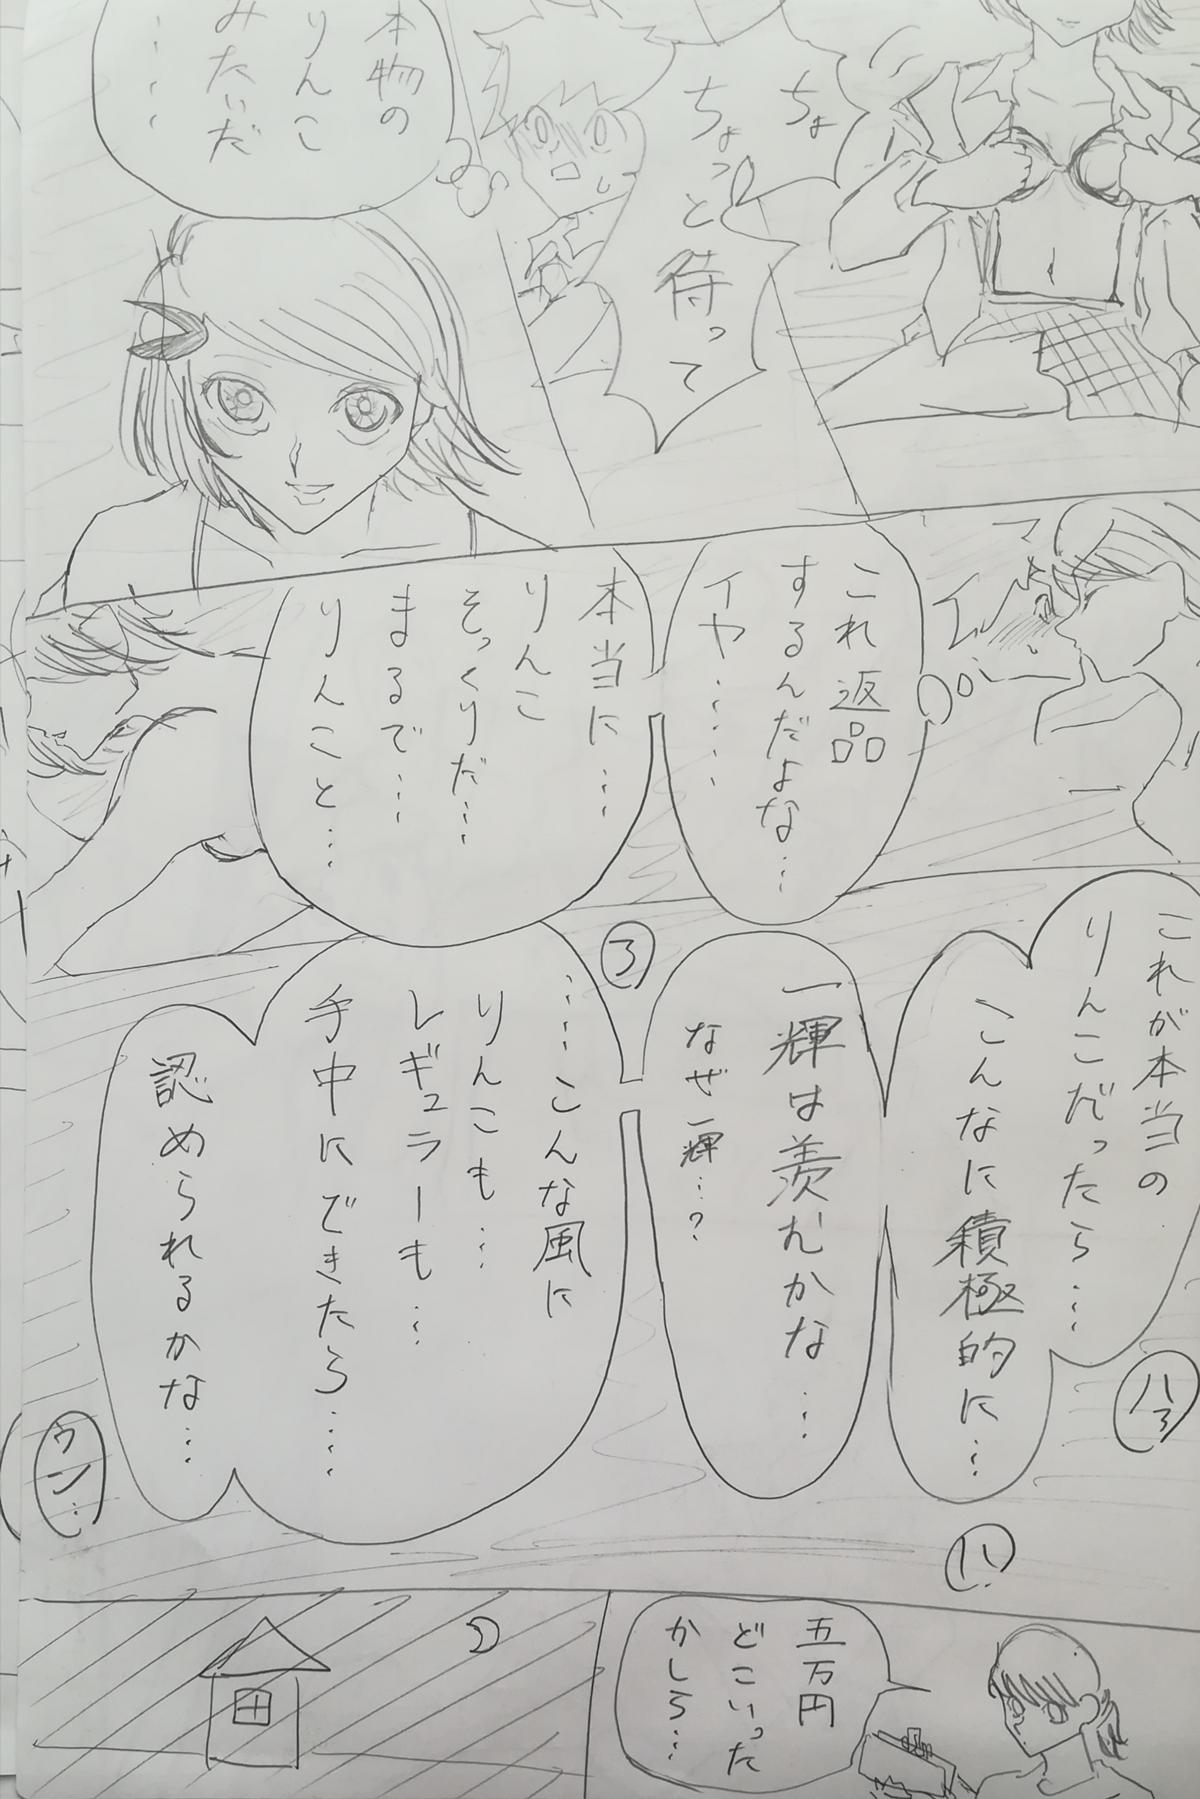 ちょ
ちょっと
待って
本物の
りんこ
みたいだ
……
これ返品
するんだよな…
イヤ……
本当に…
りんこ
そっくりだ…
まるで…
りんこと…
これが本当の
りんこだったら…
こんなに積極的に…
一輝は羨むかな…
なぜ一輝…?
…こんな風に
りんこも…
レギュラーも…
手中にできたら…
認められるかな…
ウン…
五万円
どこいった
かしら…